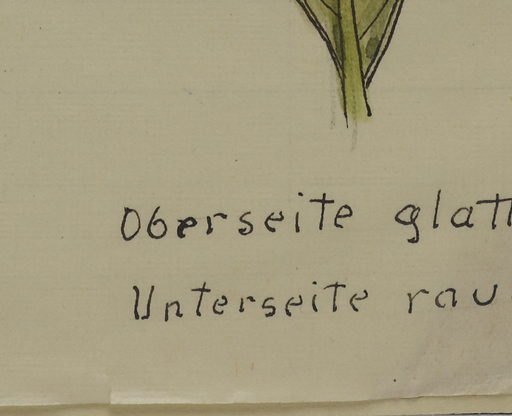 Oberseite glatt
Unterseite rau